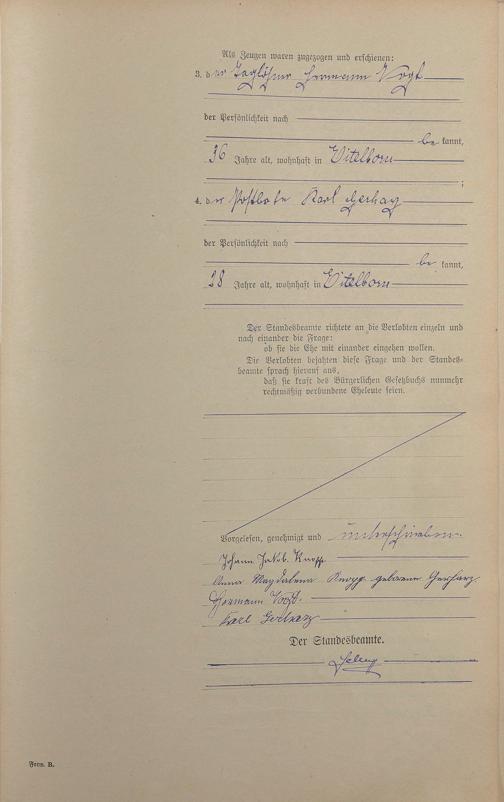 Als Zeugen waren zugezogen und erschienen:
3. der Taglöhner Hermann Vogt
der Persönlichkeit nach
be kannt,
36 Jahre alt, wohnhaft in Eitelborn
;
4. der Postbote Karl Gerharz
der Persönlichkeit nach
be kannt,
28 Jahre alt, wohnhaft in Eitelborn
Der Standesbeamte richtete an die Verlobten einzeln und
nach einander die Frage:
ob sie die Ehe mit einander eingehen wollen.
Die Verlobten bejahten diese Frage und der Standes-
beamte sprach hierauf aus,
daß sie kraft des Bürgerlichen Gesetzbuchs nunmehr
rechtmäßig verbundene Eheleute seien.
Vorgelesen, genehmigt und unterschrieben.
Johann Jakob Knopp
Anna Magdalena Knopp geborene Gerharz
Hermann Vogt.
Karl Gerharz
Der Standesbeamte.
Form. B.